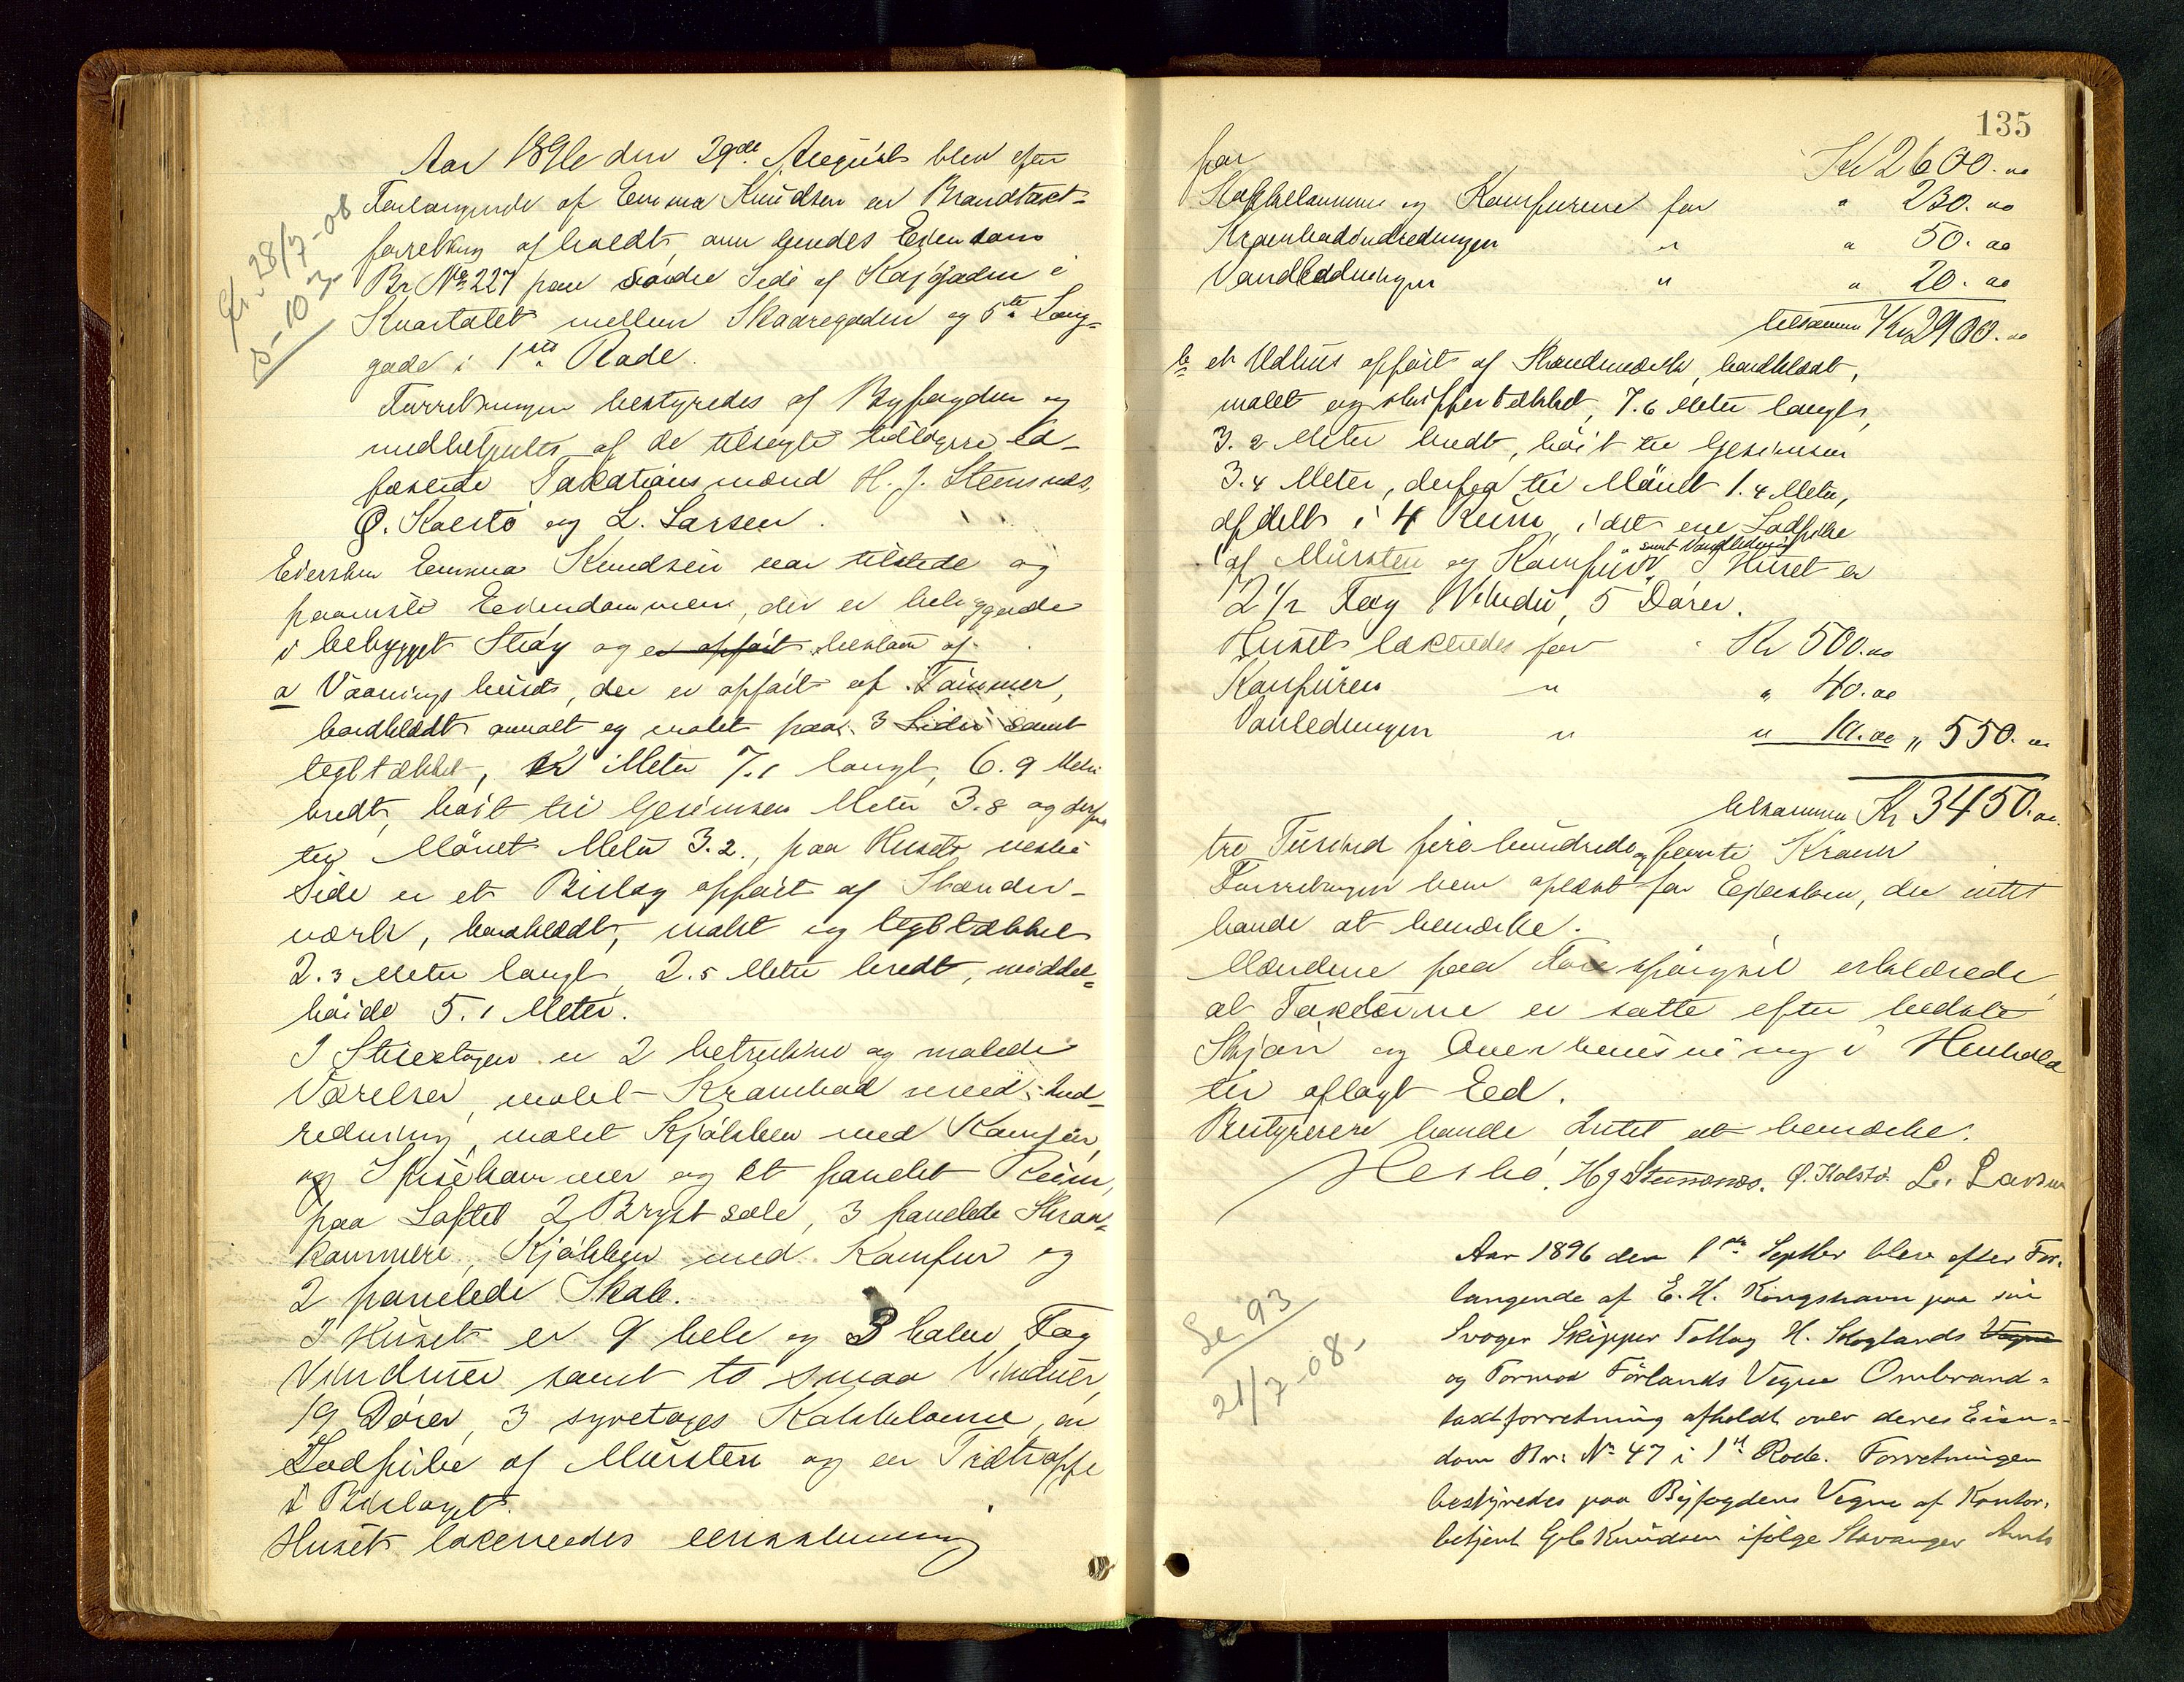 Aar 1896 den 29de August blev efter
Forlangende af Emma Knudsen en Brandtaxt-
forretning afholdt over hendes Eiendom
Br No 227 paa søndre Side af Kajgaden i
Kvartalet mellem Skaaregaden og 5te Lang-
gade i 1ste Rode.
Gr. 28/7-08
Forretningen bestyredes af Byfogden og
medbetjentes af de tilsagte tidligere ed-
fæstede Taxationsmænd H. J. Steensnæs,
Ø. Kolstø og L. Larsen.
Eiersken Emma Knudsen var tilstede og
paaviste Eiendommen, der er beliggende
i bebygget Strøg og er opført bestaar af
a Vaaningshuset, der er opført af Tømmer,
bordklædt omalt og malet paa 3 Sider samt
teglt​ækket, er Meter 7.1 langt, 6.9 Meter
bredt, høit til Gesimsen Meter 3.8 og derfra
til Mønet Meter 3.2., paa Husets vestre
Side er et Bislag opført af Stænder-
værk, bordklædt, malet og teglt​ækket
2.3 Meter langt, 2.5 Meter bredt, middel-
høide 5.1 Meter.
I Stueetagen er 2 betrukne og malede
Værelser, malet Krambod med Ind-
redning, malet Kjøkken med Komfur,
og Spisekammer og et panelet Rum,
paa Loftet 2 Brystsale, 3 panelede Skraa-
kammere, Kjøkken med Komfur og
2 panelede Skabe.
I Huset er 9 hele og 3 halve Fag
Vinduer samt to smaa Vinduer,
19 Dører, 3 syvetages Kakkelovne, en
Lodpibe af Mursten og en Tridtrappe
i Bislaget.
Huset laxeredes eenstemmig
135
for Kr 2600.00
Kakkelovnene og Komfurene for " 230.00
Krambodindredningen " " 50.00
Vandledningen " " 20.00
tilsammen Kr 2900.00
b et Udhus opført af Stændværk, bordklædt,
malet og skiffertækket, 7.6 Meter langt,
3.2 Meter bredt, høit til Gesimsen
3.4 Meter, derfra til Mønet 1.4 Meter,
afdelt i 4 Rum, i det ene Lodpibe
af Mursten og Komfur samt Vandledning. I Huset er
2 1/2 Fag Vindu, 5 Dører.
Huset laxeredes for Kr 500.00
Komfuren " " 40.00
Vanledningen " " 10.00 " 550.00
tilsammen Kr 3450.00
tre Tusind fire hundrede og femti Kroner
Forretningen blev oplæst for Ejersken, der intet
havde at bemærke.
Mændene paa Forespørgsel erklærede
at Taxterne er satte efter bedste
Skjøn og Overbevisning i Henhold
til aflagt Eed.
Bestyreren havde Intet at bemærke.
Hesbø. H J Steensnæs. Ø. Kolstø. L. Larsen
Aar 1896 den 1ste Septbr blev efter For-
langende af E. H. Kongshavn paa sin
Svoger Skipper Tollag H. Skoglands Vegne
og Tormod Førlands Vegne Ombrand-
taxtforretning afholdt over deres Eien-
dom Br: No 47 i 1st Rode. Forretningen
bestyredes paa Byfogdens Vegne af Kontor-
betjent Knudsen ifølge Stavanger Amts
Se 93
21/7-08.